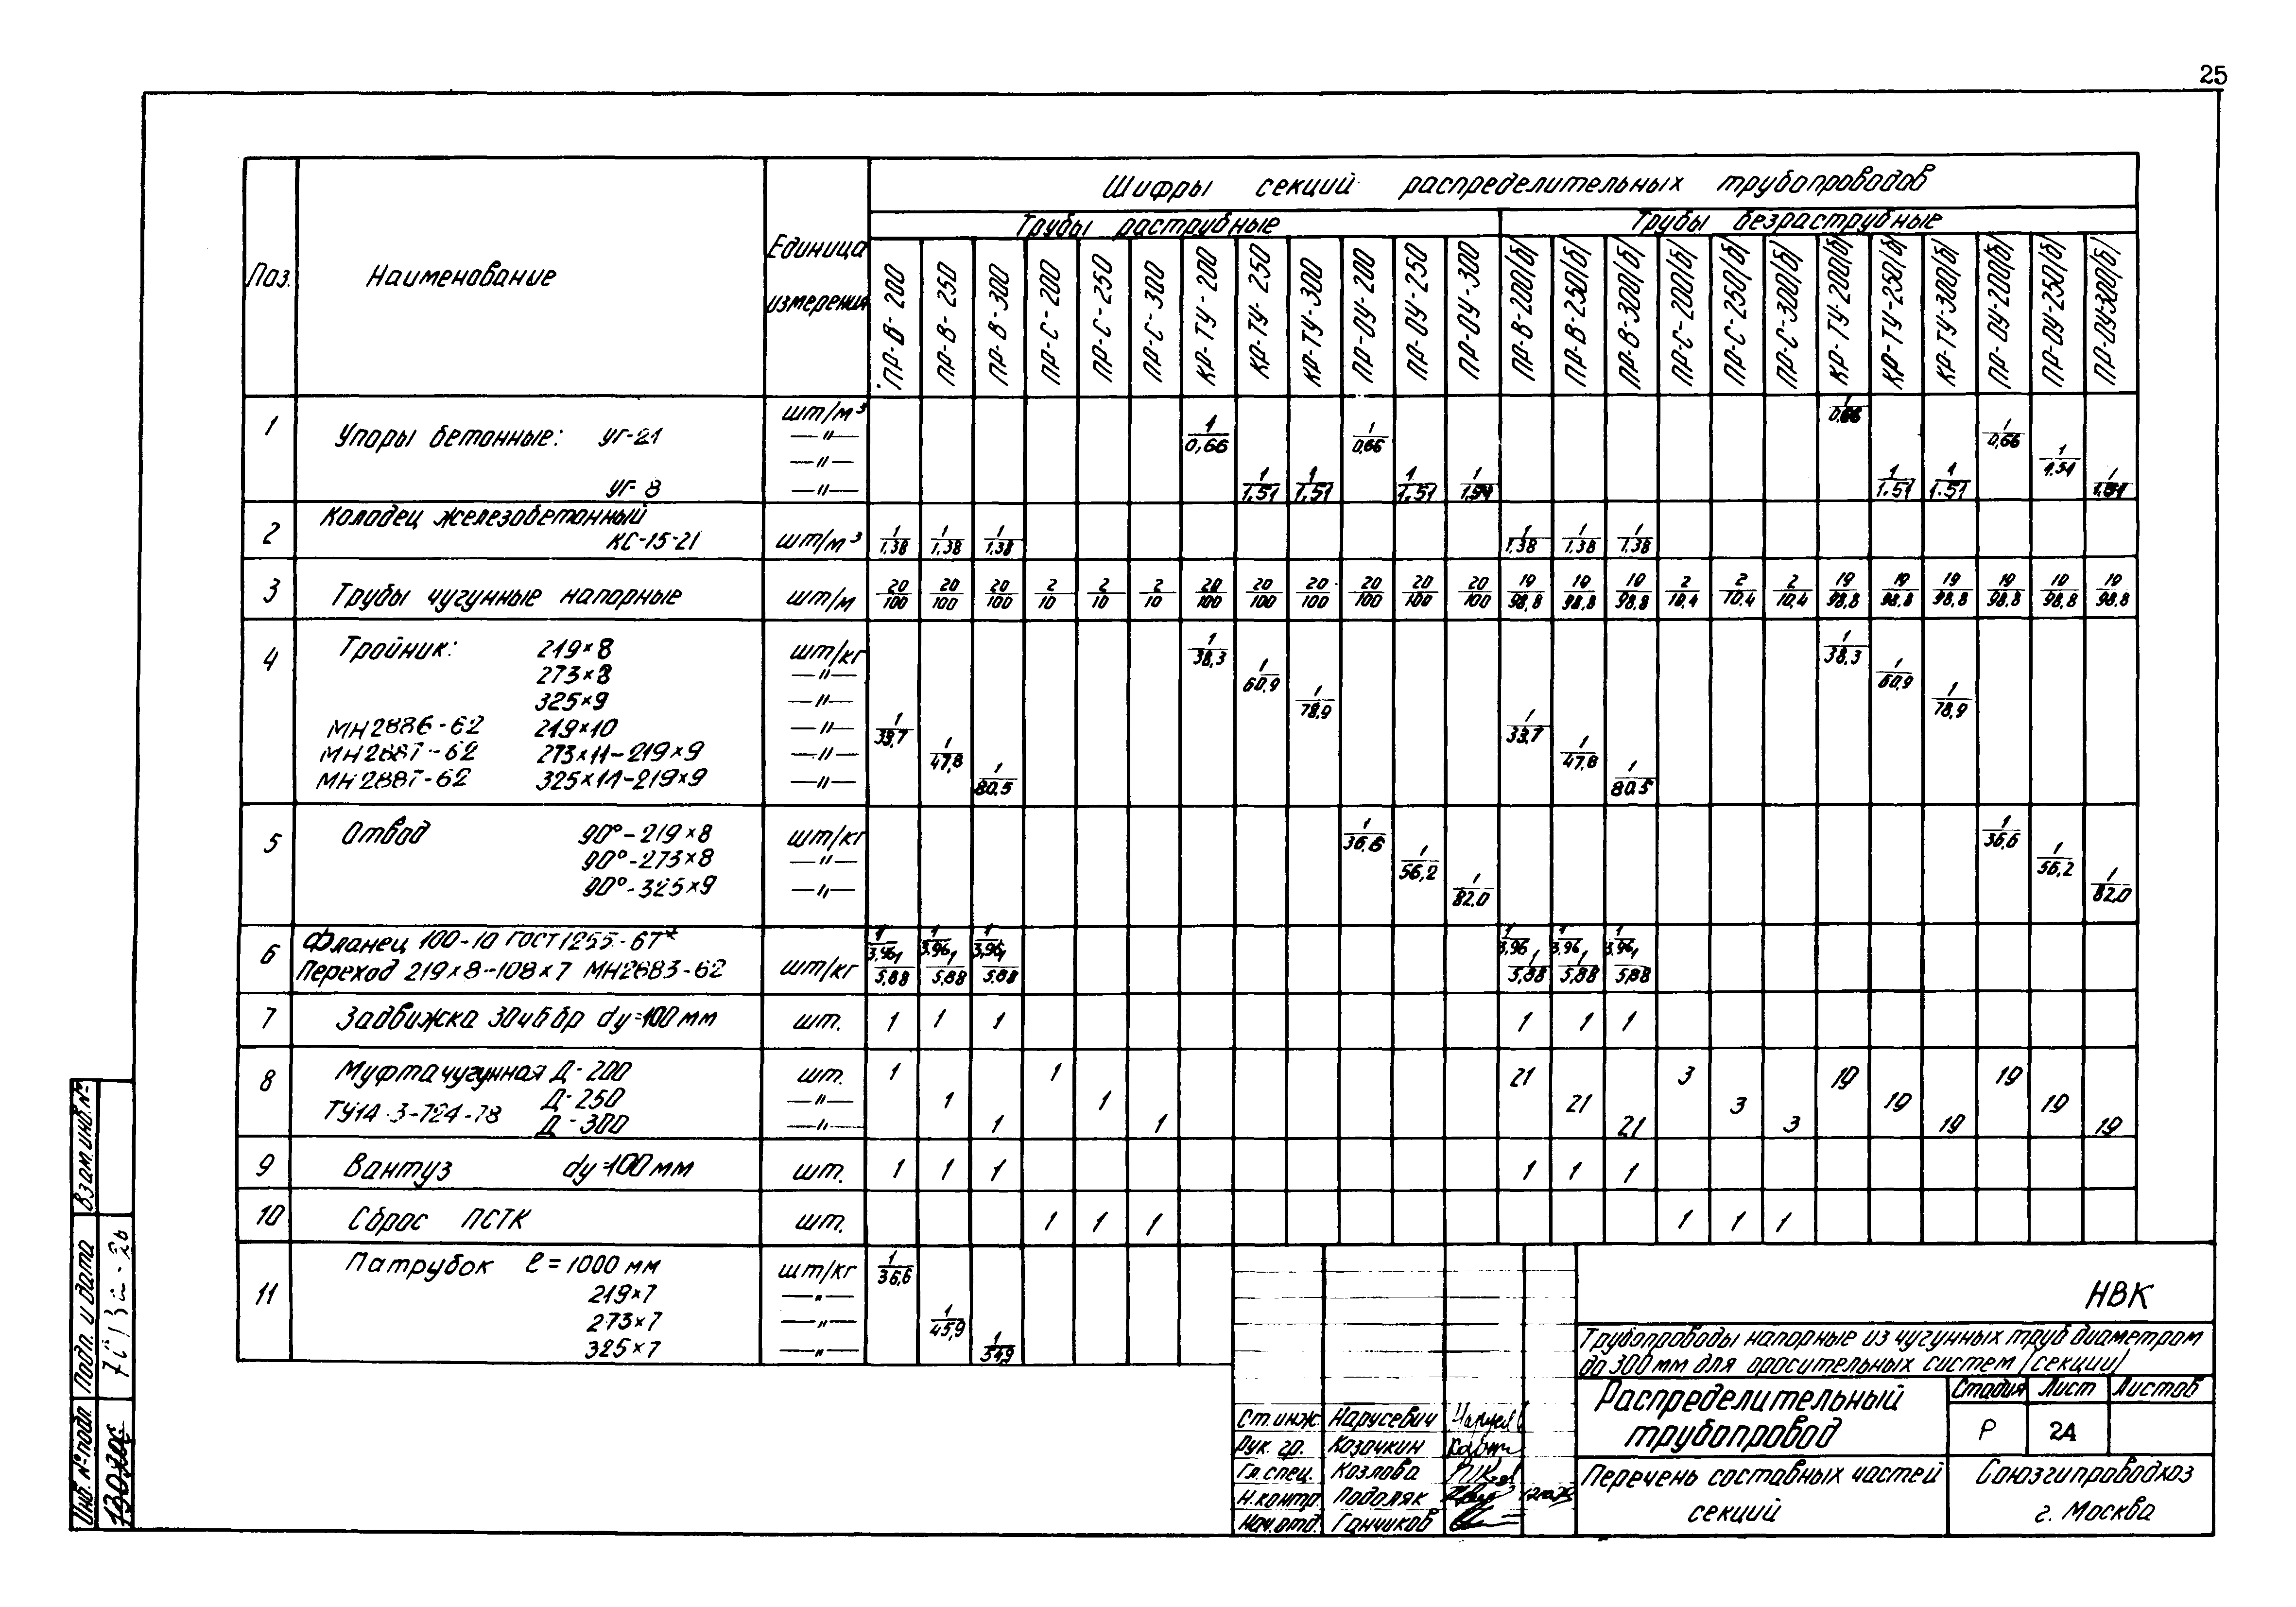 25
Шифры секций распределительных трубопроводов
Трубы раструбные Трубы безраструбные
Поз. Наименование Единица измерения
ПР-В-200 ПР-В-250 ПР-В-300 ПР-С-200 ПР-С-250 ПР-С-300 КР-ТУ-200 КР-ТУ-250 КР-ТУ-300 ПР-ОУ-200 ПР-ОУ-250 ПР-ОУ-300 ПР-В-200/б/ ПР-В-250/б/ ПР-В-300/б/ ПР-С-200/б/ ПР-С-250/б/ ПР-С-300/б/ КР-ТУ-200/б/ КР-ТУ-250/б/ КР-ТУ-300/б/ ПР-ОУ-200/б/ ПР-ОУ-250/б/ ПР-ОУ300/б/
шт/м³ 1/0,66
1 Упоры бетонные: УГ-21 —"— 1/0,66 1/0,66 1/0,66
—"— 1/1.51
УГ-8 —"— 1/1.51 1/1.51 1/1.51 1/1.51 1/1.51 1/1.51 1/1.51
Колодец железобетонный
2 КС-15-21 шт/м³ 1/1,38 1/1,38 1/1,38 1/1,38 1/1,38 1/1,38
3 Трубы чугунные напорные шт/м 20/100 20/100 20/100 2/10 2/10 2/10 20/100 20/100 20/100 20/100 20/100 20/100 19/98,8 19/98,8 19/98,8 2/10,4 2/10,4 2/10,4 19/98,8 19/98,8 19/98,8 19/98,8 19/98,8 19/98,8
4 Тройник: 219×8 шт/кг 1/38,3 1/38,3
273×8 —"— 1/60,9 1/60,9
325×9 —"— 1/78,9 1/78,9
МН2886-62 219×10 —"— 1/33,7 1/33,7
МН2887-62 273×11-219×9 —"— 1/47,8 1/47,8
МН2887-62 325×11-219×9 —"— 1/80,5 1/80.5
5 Отвод 90°-219×8 шт/кг 1/36,6 1/36,6
90°-273×8 —"— 1/56,2 1/56,2
90°-325×9 —"— 1/82,0 1/82,0
6 Фланец 100-10 ГОСТ1255-67* 1/3,96 1/3,96 1/3,96 1/3,96 1/3,96 1/3,96
Переход 219×8-108×7 МН2883-62 шт/кг 1/5,88 1/5,88 1/5.88 1/5,88 1/5,88 1/5,88
7 Задвижка 30ч6бр dу=100мм шт. 1 1 1 1 1 1
8 Муфта чугунная Д-200 шт. 1 1 21 3 19 19
Д-250 —"— 1 1 21 3 19 19
ТУ14-3-724-78 Д-300 —"— 1 1 21 3 19 19
9 Вантуз dу=100мм шт. 1 1 1 1 1 1
10 Сброс ПСТК шт. 1 1 1 1 1 1
11 Патрубок ℓ=1000 мм шт/кг 1/36,6
219×7 —"—
273×7 —"— 1/45,9
325×7 —"— 1/549
НВК
Трубопроводы напорные из чугунных труб диаметром
до 300мм для оросительных систем /секции/
Распределительный
трубопровод
Стадия Лист Листов
Р 24
Перечень составных частей
секций
Союзгипроводхоз
г. Москва
Ст.инж. Нарусевич
Рук. гр. Козочкин
Гл.спец. Козлова
Н.контр. Подоляк
Нач.отд. Ганчиков
Взам.инв.№
Подп. и дата
Инв.№подл.